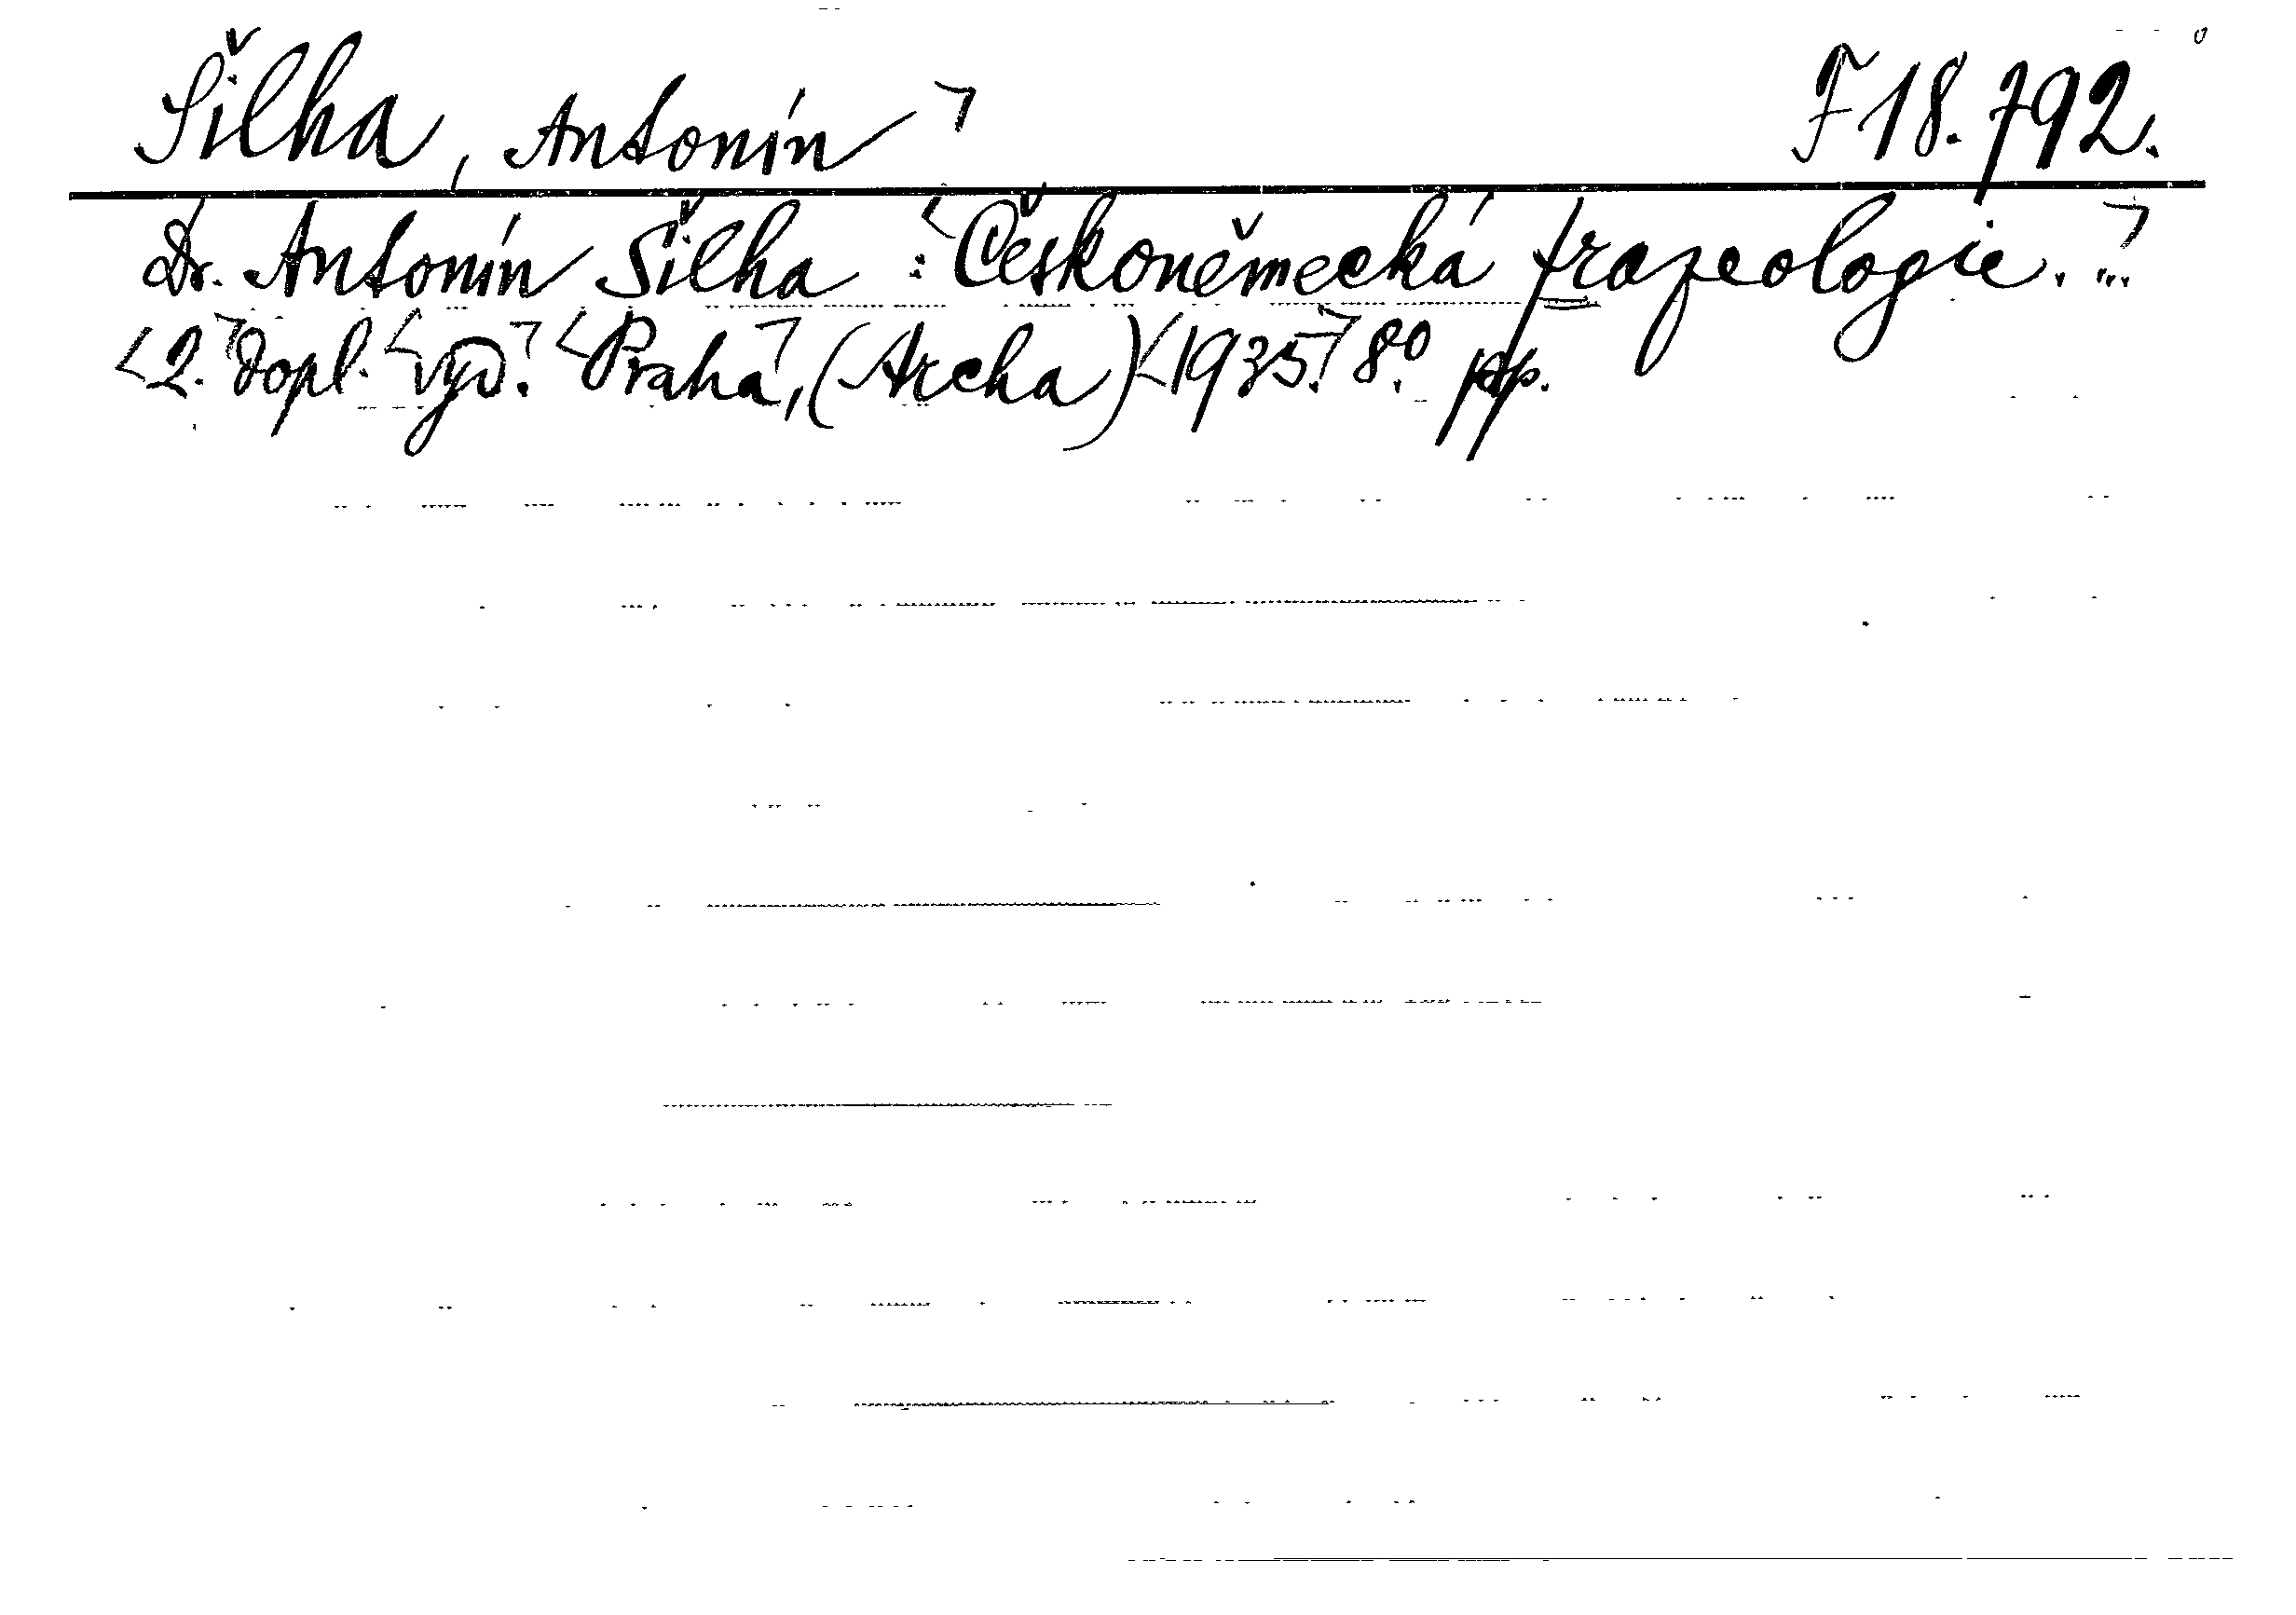 Šilha, Antonín ㄱ F 18.792.
Dr. Antonín Šilha : <Českoněmecká frazeologie. ...ㄱ
<2.ㄱ dopl. <vyd.ㄱ <Prahaㄱ, (Archa) <1935.ㄱ 8.º pp.